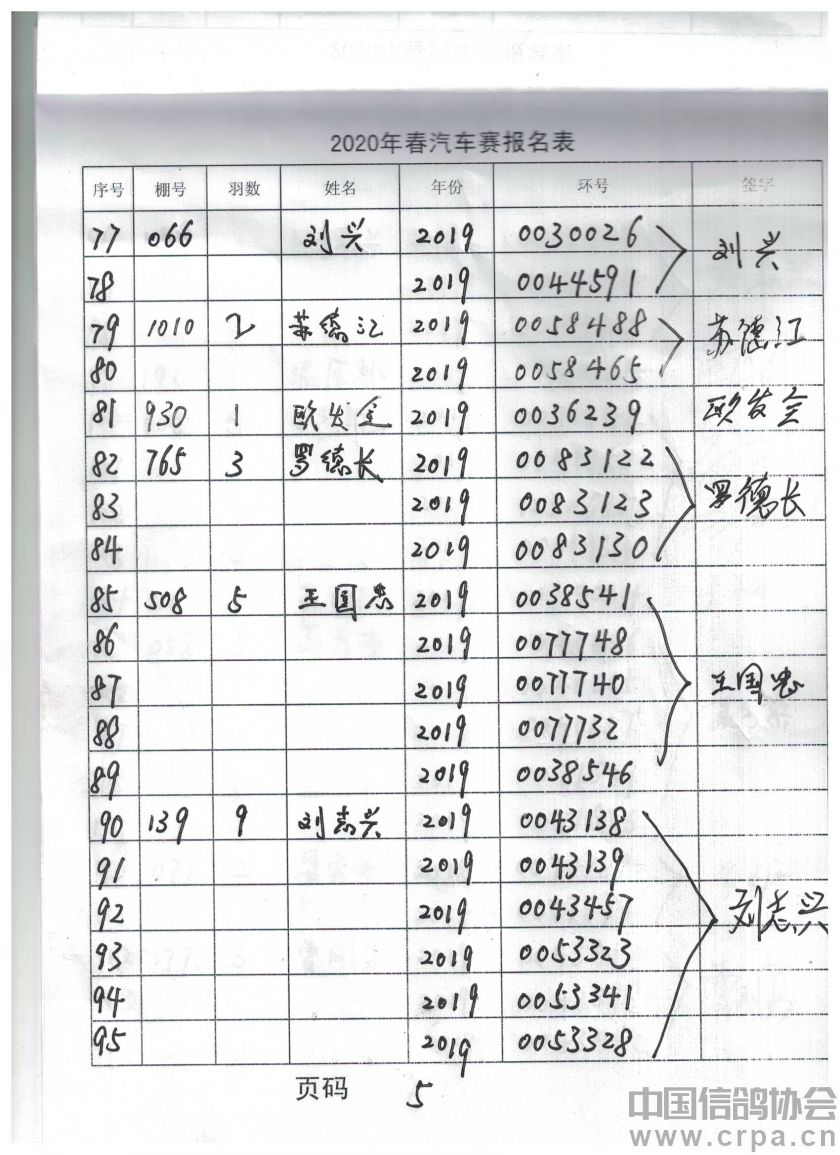 2020年春汽车赛报名表
序号 棚号 羽数 姓名 年份 环号 签字
77 066 刘兴 2019 0030026 刘兴
78 2019 0044591
79 1010 2 苏德江 2019 0058488 苏德江
80 2019 0058465
81 930 1 欧发全 2019 0036239 欧发全
82 765 3 罗德长 2019 0083122
83 2019 0083123 罗德长
84 2019 0083130
85 508 5 王国忠 2019 0038541
86 2019 0077748
87 2019 0077740 王国忠
88 2019 0077732
89 2019 0038546
90 139 9 刘志兴 2019 0043138
91 2019 0043139
92 2019 0043457 刘志兴
93 2019 0053323
94 2019 0053341
95 2019 0053328
页码 5
中国信鸽协会
www.crpa.cn